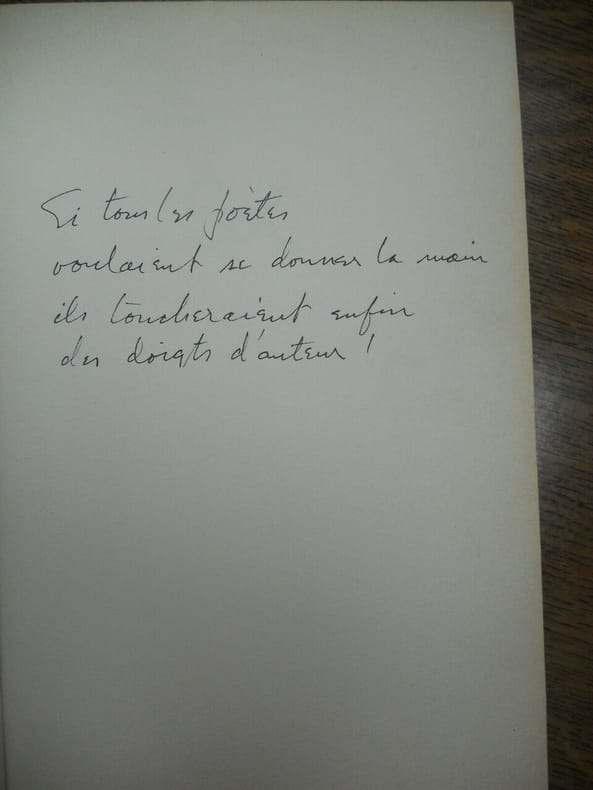 Si tous les poètes
voulaient se donner la main
ils toucheraient enfin
des doigts d'auteur !